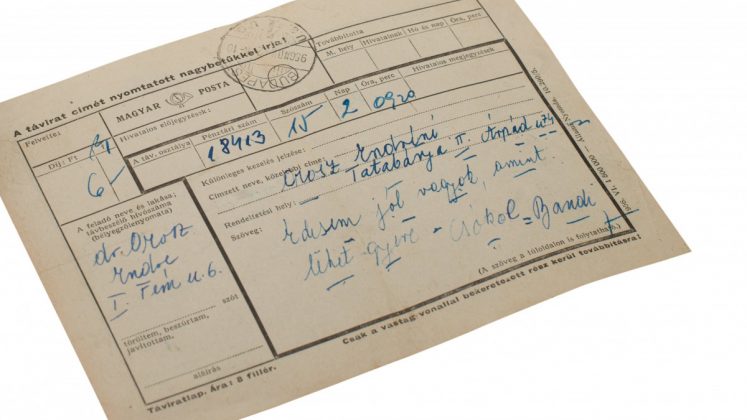 A távirat címét nyomtatott nagybetükkel írja!
BUDAPEST
Továbbította
M. hely
Hivatalnak
Hó és nap
Óra, perc
Felvette:
MAGYAR POSTA
Hivatalos előjegyzések:
Díj: Ft
6 –
A táv. osztálya
Pénztári szám
Szószám
Nap
Óra, perc
Hivatalos megjegyzések
18413 15 2 0920
Különleges kezelés jelzése:
Címzett neve, közelebbi címe:
Orosz Endréné
Tatabánya II Árpád u 74
Rendeltetési hely:
Szöveg:
Édesem jól vagyok, amint
lehet gyere – Csókol = Bandi
(A szöveg a túloldalon is folytatható.)
A feladó neve és lakása,
távbeszélő hívószáma
(bélyegzőlenyomata)
dr. Orosz
Endre
I. Fém u. 6.
szót
töröltem, beszúrtam,
javítottam.
aláírás
Csak a vastag vonallal bekeretezett rész kerül továbbításra!
Táviratlap. Ára: 8 fillér.